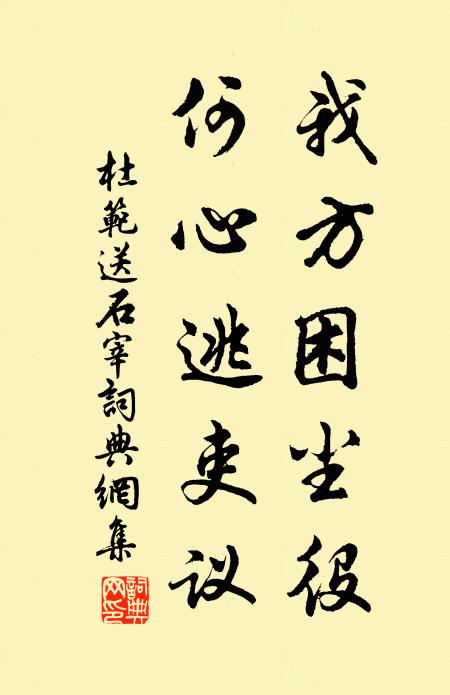 我方困尘役
何心逃吏议
杜範送石宰詞典網集
詞典網印